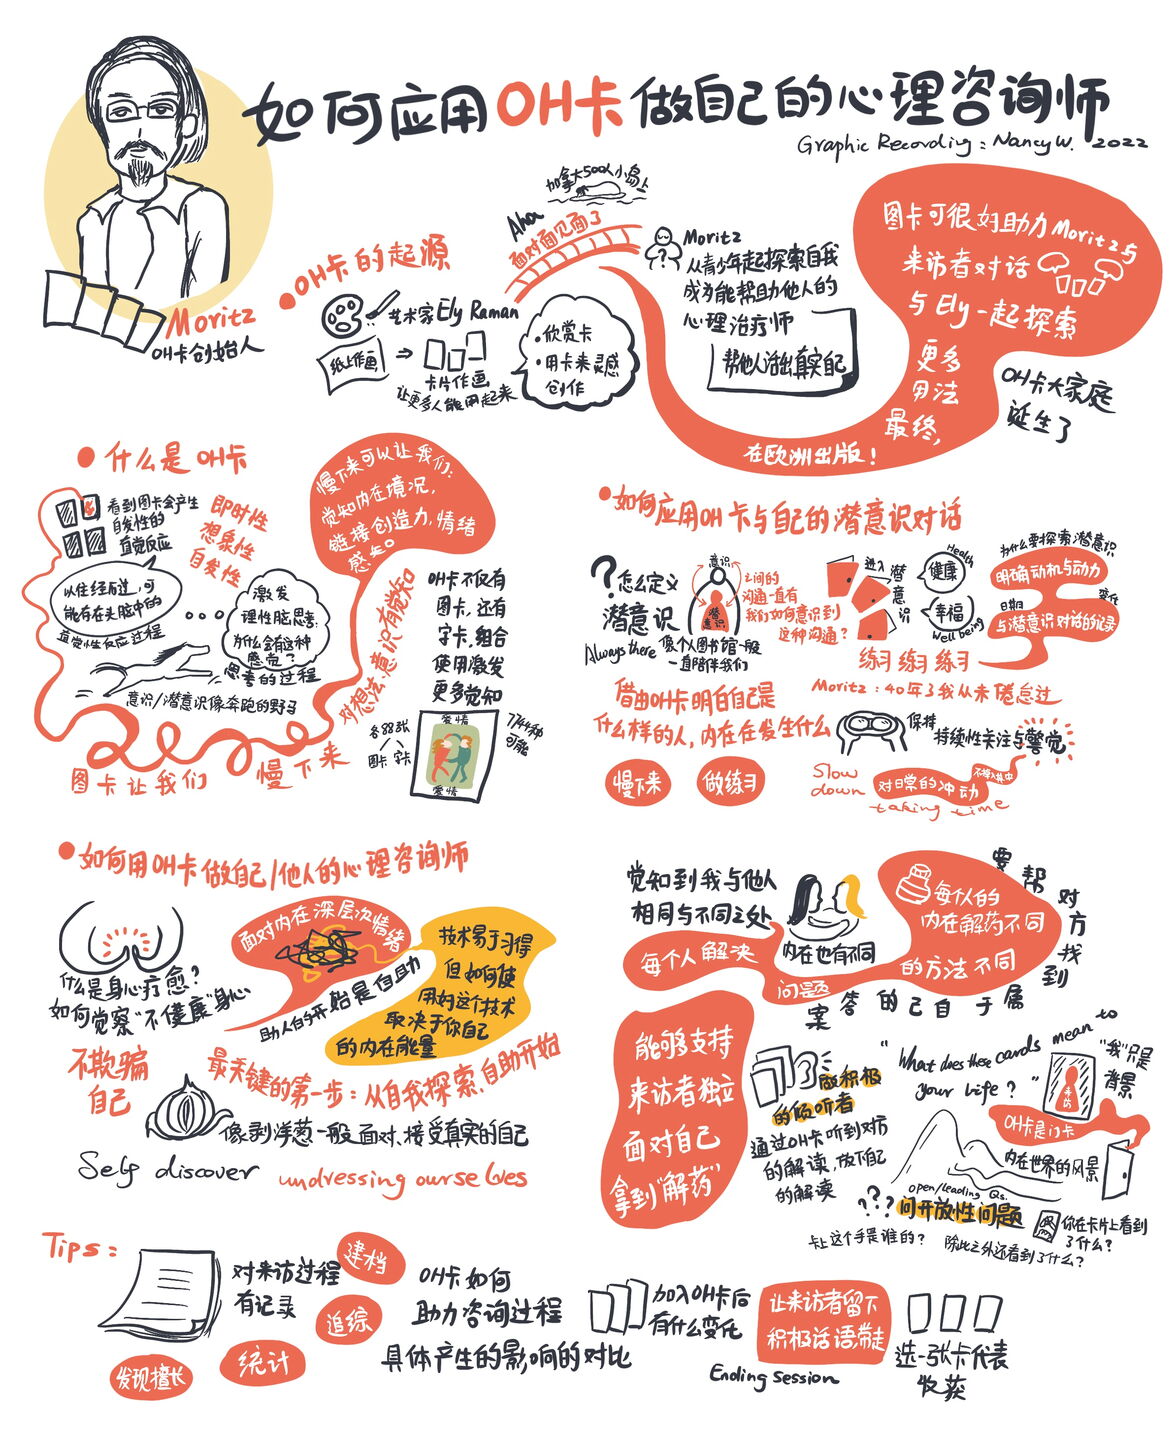 如何应用OH卡做自己的心理咨询师
Graphic Recording : Nancy W. 2022
Moritz
OH卡创始人
OH卡的起源
艺术家Ely Raman
纸上作画
卡片作画
让更多人能用起来
欣赏卡
用卡来灵感
创作
Aha
面对面见面了
加拿大500人小岛上
Moritz
从青少年起探索自我
成为能帮助他人的
心理治疗师
帮他人活出真实自己
在欧洲出版!
图卡可很好助力Moritz与
来访者对话
与Ely一起探索
更多
用法
最终,
OH卡大家庭
诞生了
什么是OH卡
看到图卡会产生
自发性的
直觉反应
即时性
想象性
自发性
以往经历过,可
能存在头脑中的
直觉性反应过程
激发
理性脑思考:
为什么会有这种
感觉?
思考的过程
意识/潜意识像奔跑的野马
图卡让我们
慢下来
对想法、意识有觉知
慢下来可以让我们:
觉知内在境况,
链接创造力,情绪
感知。
OH卡不仅有
图卡,还有
字卡,组合
使用激发
更多觉知
各88张
图卡 字卡
爱情
爱情
7744种
可能
如何应用OH卡与自己的潜意识对话
?怎么定义
潜意识
Always there
意识
潜意识
之间的
沟通一直有
我们如何意识到
这种沟通?
像个人图书馆一般
一直陪伴我们
进入
潜意识
Health
健康
幸福
Well being
练习 练习 练习
为什么要探索潜意识
明确动机与动力
日期
变化
与潜意识对话的记录
Moritz:40年了我从未倦怠过
借由OH卡明白自己是
什么样的人,内在在发生什么
慢下来
做练习
保持
持续性关注与警觉
Slow
down
对日常的冲动
不掉入其中
taking time
如何用OH卡做自己/他人的心理咨询师
什么是身心疗愈?
如何觉察“不健康”身心
面对内在深层次情绪
助人的开始是自助
技术易于习得
但如何使
用好这个技术
取决于你自己
的内在能量
不欺骗
自己
最关键的第一步:从自我探索、自助开始
像剥洋葱一般面对、接受真实的自己
Self discover
undressing ourselves
觉知到我与他人
相同与不同之处
内在也有不同
每个人解决
问题
的方法不同
每个人的
内在解药不同
要帮对方找到属于自己的答案
能够支持
来访者独立
面对自己
拿到“解药”
做积极
的倾听者
通过OH卡听到对方
的解读,放下自己
的解读
“What does these cards mean to
your life?”
来访
“我”只是
背景
OH卡是门卡
内在世界的风景
open/leading Qs.
???问开放性问题
卡上这个手是谁的?
除此之外还看到了什么?
你在卡片上看到
了什么?
Tips:
对来访过程
有记录
建档
追综
统计
发现擅长
OH卡如何
助力咨询过程
具体产生的影响的对比
加入OH卡后
有什么变化
让来访者留下
积极话语带走
Ending session
选一张卡代表
收获